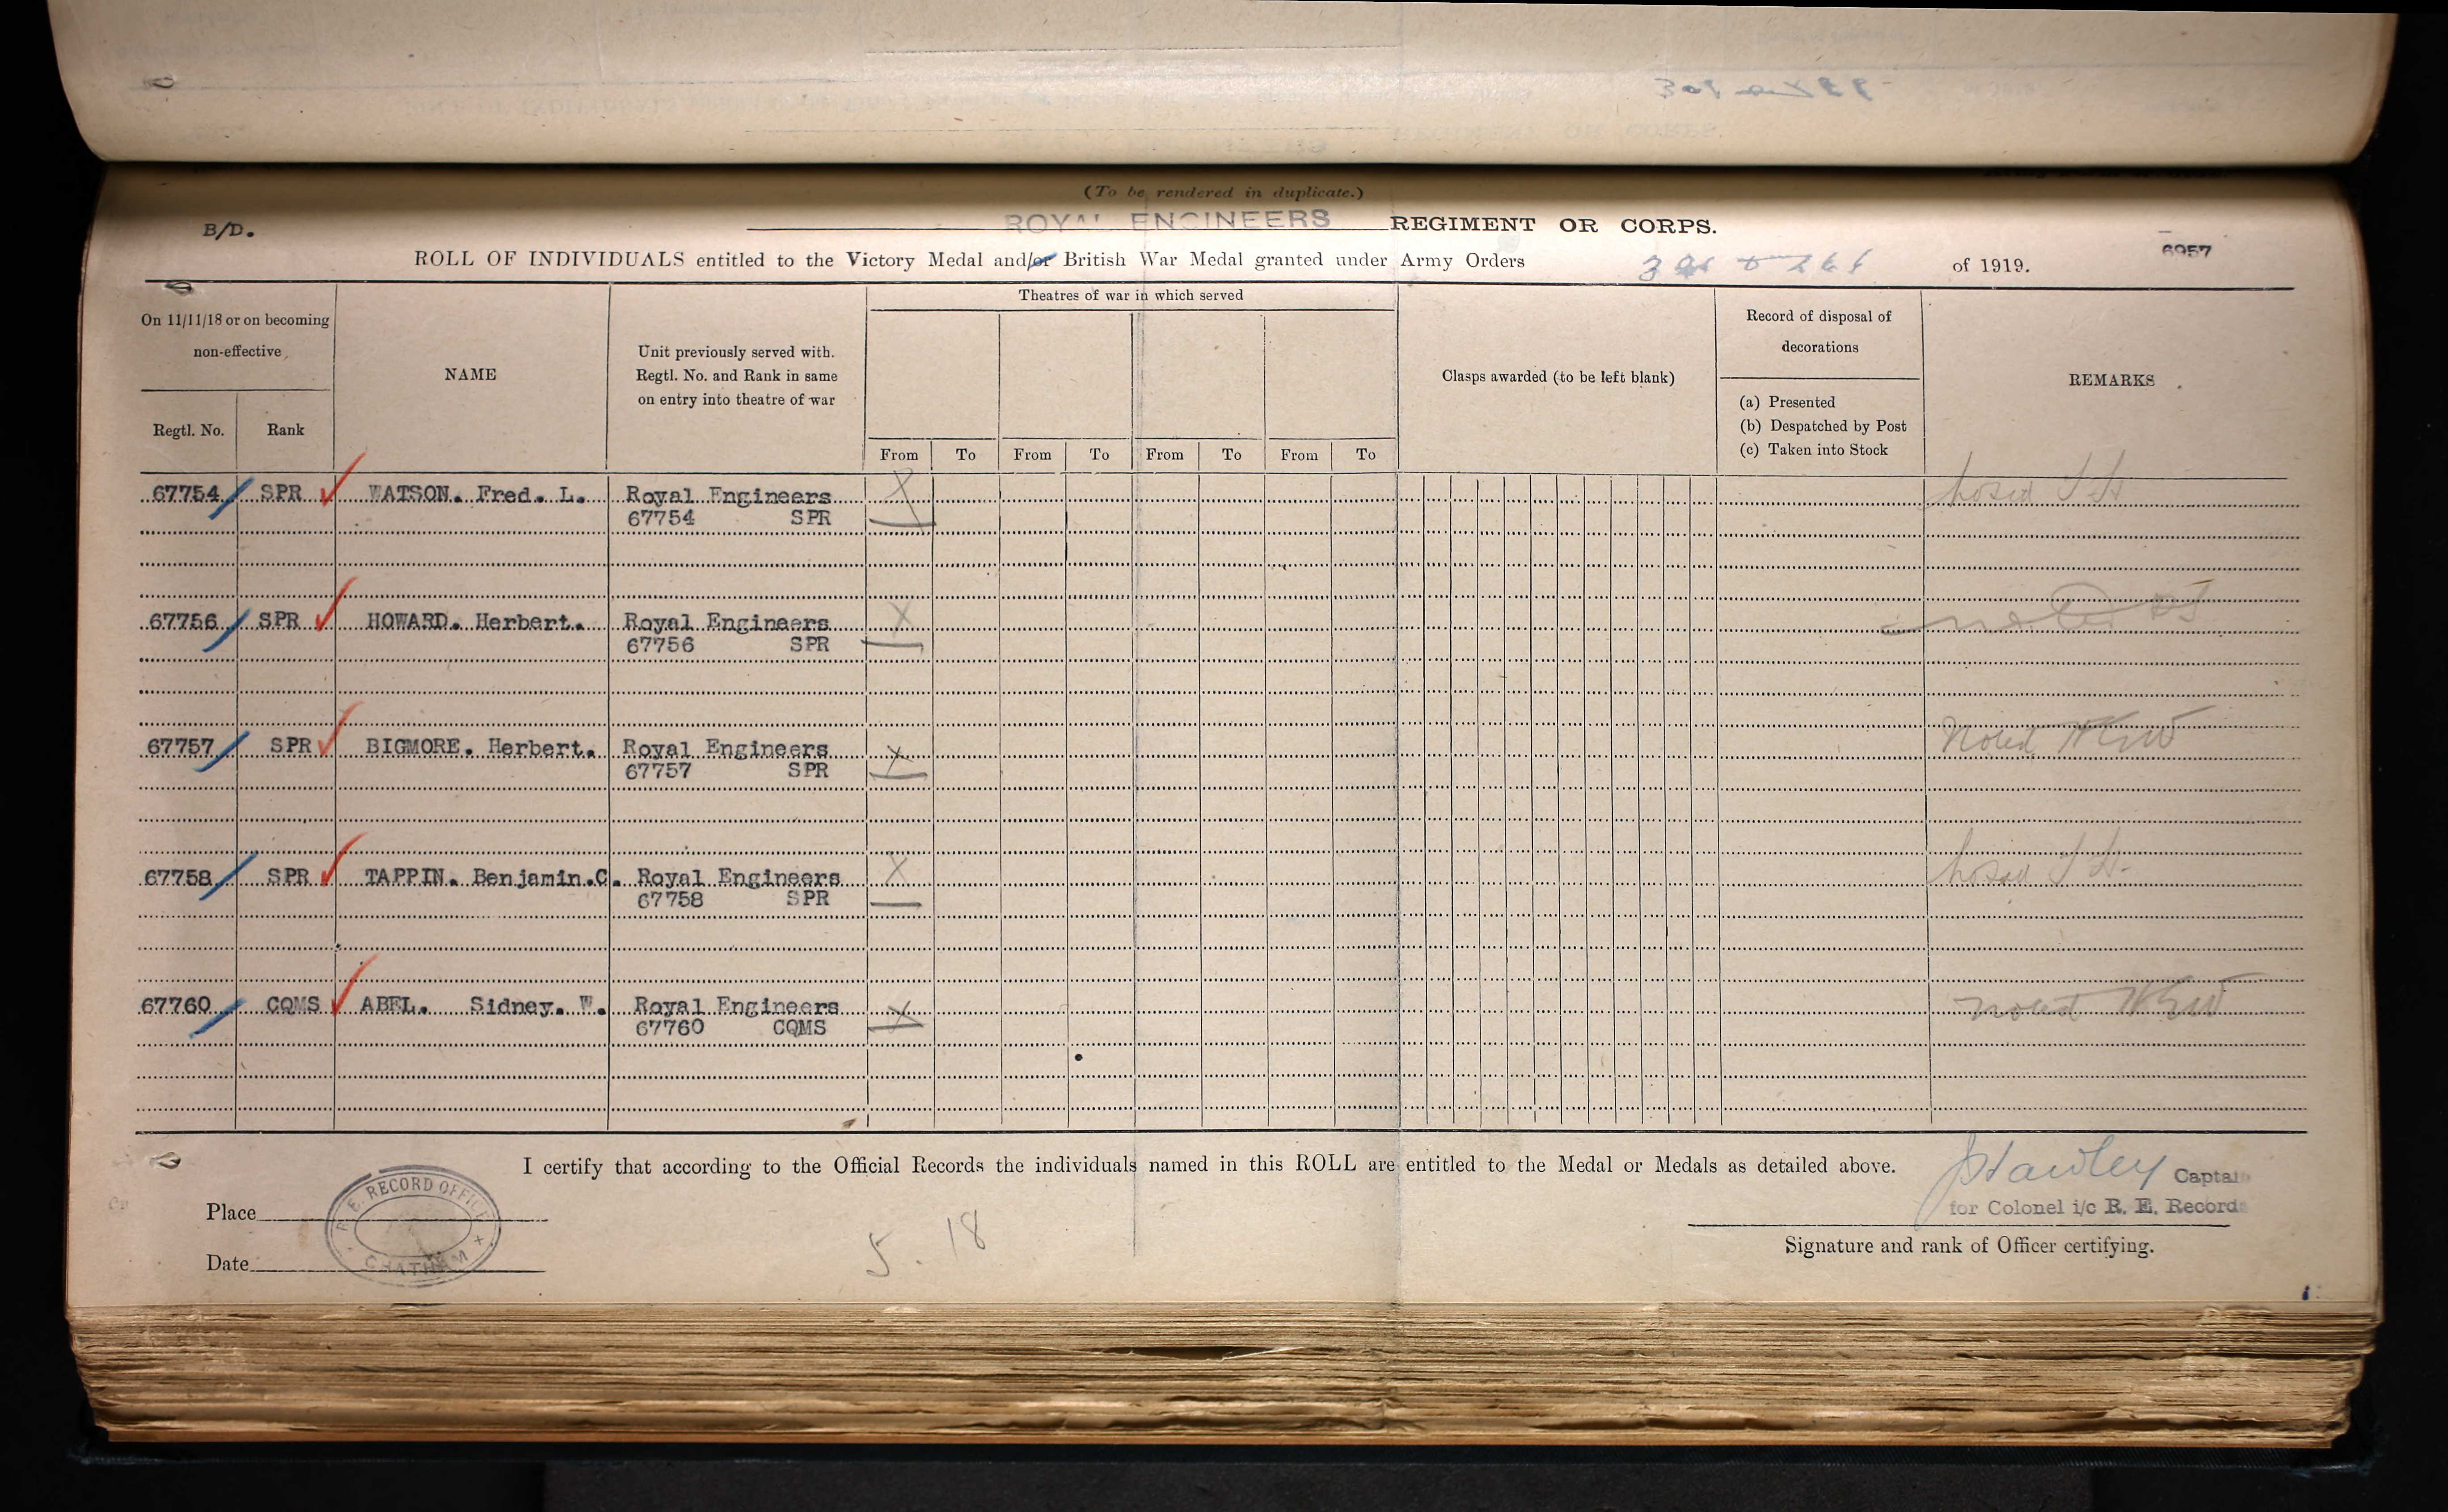 (To be rendered in duplicate.)
B/D.
ROYAL ENGINEERS REGIMENT OR CORPS.
6957
ROLL OF INDIVIDUALS entitled to the Victory Medal and/or British War Medal granted under Army Orders of 1919.
On 11/11/18 or on becoming
non-effective
Regtl. No.
Rank
NAME
Unit previously served with.
Regtl. No. and Rank in same
on entry into theatre of war
Theatres of war in which served
From To From To From To From To
Clasps awarded (to be left blank)
Record of disposal of
decorations
(a) Presented
(b) Despatched by Post
(c) Taken into Stock
REMARKS
67754 SPR WATSON. Fred. L. Royal Engineers X
67754 SPR
67756 SPR HOWARD. Herbert. Royal Engineers X noted
67756 SPR
67757 SPR BIGMORE. Herbert. Royal Engineers X Noted
67757 SPR
67758 SPR TAPPIN. Benjamin.C. Royal Engineers X
67758 SPR
67760 CQMS ABEL. Sidney. W. Royal Engineers X noted
67760 CQMS
I certify that according to the Official Records the individuals named in this ROLL are entitled to the Medal or Medals as detailed above.
Captain
for Colonel i/c R. E. Records
Signature and rank of Officer certifying.
Place
Date
R. E. RECORD OFFICE
CHATHAM
5. 18